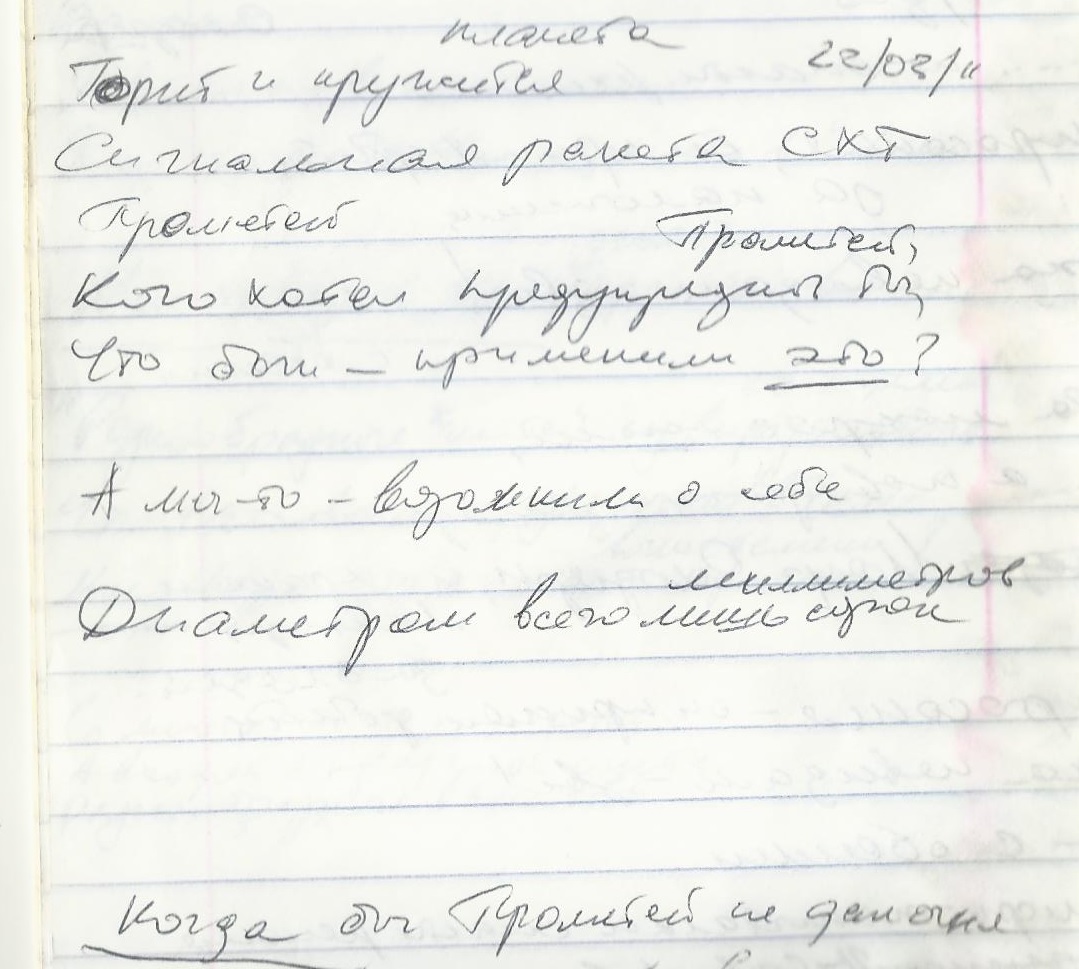 планета
Горит и кружится 22/03/11
Сигнальная ракета СКТ
Прометей
Прометей,
Кого хотел предупредить ты,
Что боги – применили это?
А мы-то – возомнили о себе
миллиметров
Диаметром всего лишь
Когда бы Прометей не дал огня